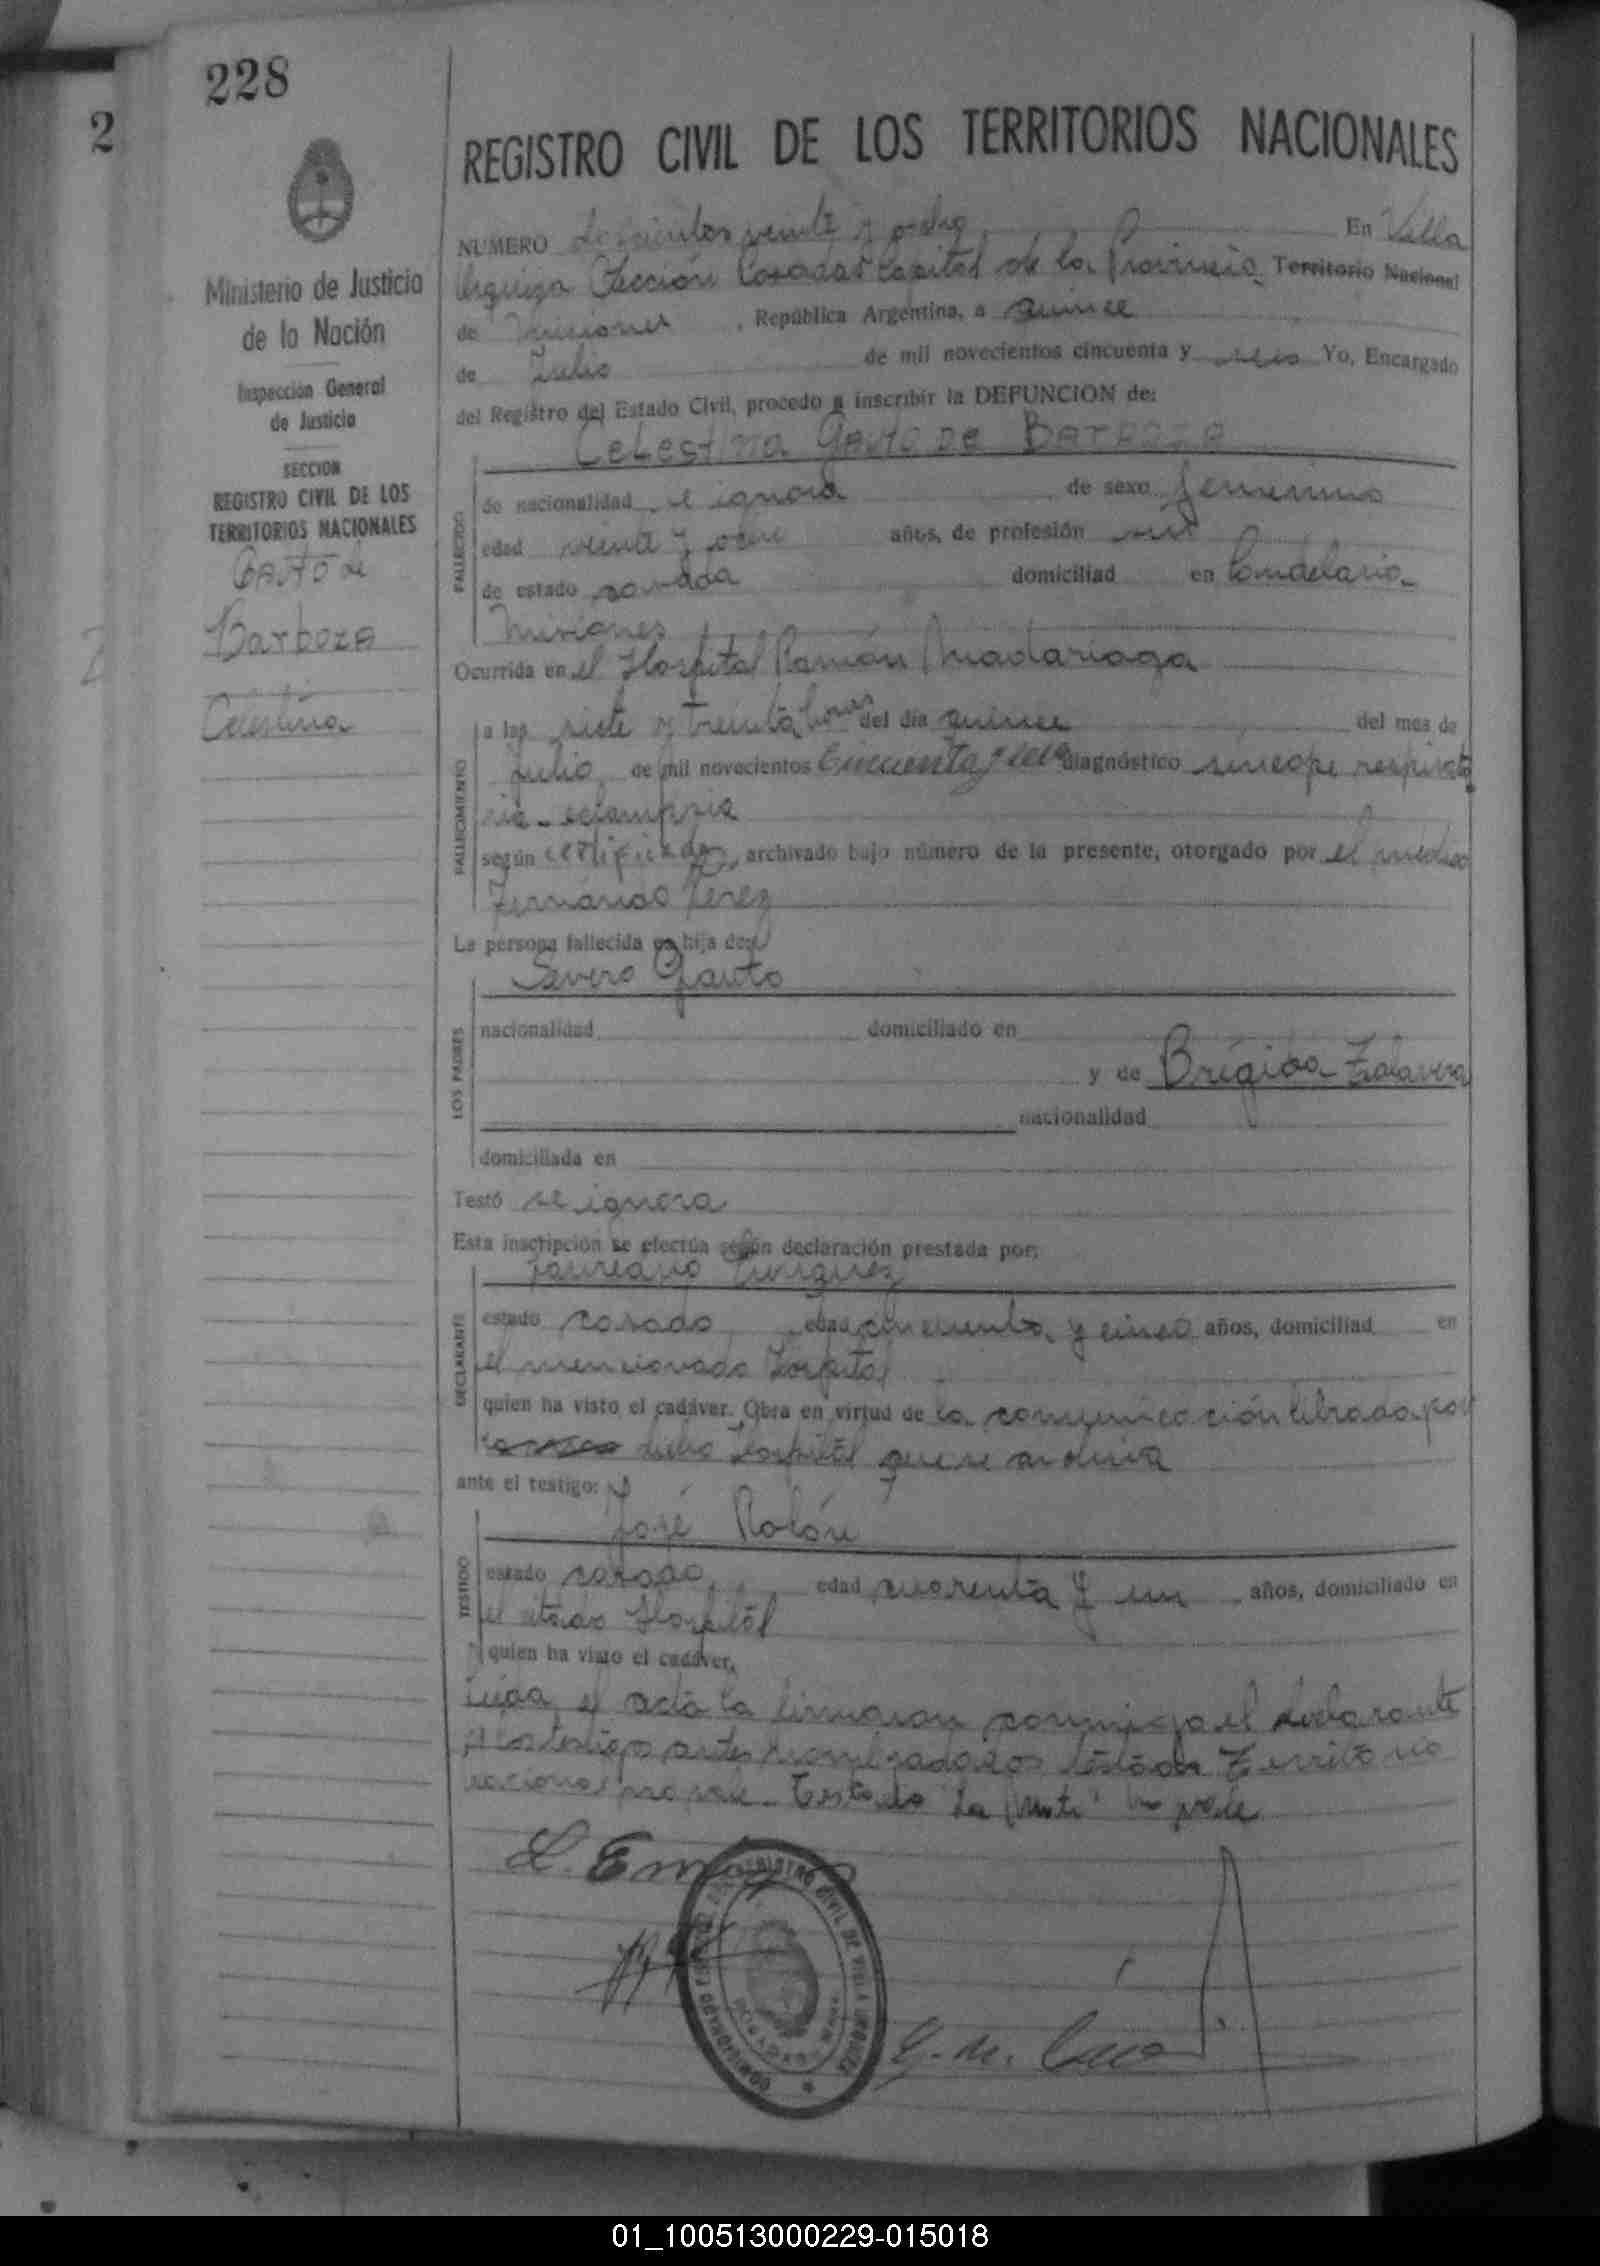 228
2
REGISTRO CIVIL DE LOS TERRITORIOS NACIONALES
Ministerio de Justicia
de la Nación
Inspección General
de Justicia
SECCION
REGISTRO CIVIL DE LOS
TERRITORIOS NACIONALES
Gauto de
Barboza
Celestina
NUMERO doscientos veinte y ocho En Villa
Urquiza Sección Posadas capital de la Provincia Territorio Nacional
de Misiones, República Argentina, a quince
de Julio de mil novecientos cincuenta y seis Yo, Encargado
del Registro del Estado Civil, procedo a inscribir la DEFUNCION de:
Celestina Gauto de Barboza
FALLECIDO
de nacionalidad se ignora de sexo femenino
edad veinte y ocho años, de profesión
de estado casada domiciliad en Candelaria
Misiones
Ocurrida en el Hospital Ramón Madariaga
FALLECIMIENTO
a las siete y treinta horas del día quince del mes de
julio de mil novecientos cincuenta y seis diagnóstico síncope respirato
ria - eclampsia
según certificado, archivado bajo número de la presente, otorgado por el médico
Fernando Perez
La persona fallecida es hija de:
Severo Gauto
LOS PADRES
nacionalidad domiciliado en
y de Brígida Talavera
nacionalidad
domiciliada en
Testó se ignora
Esta inscripción se efectúa según declaración prestada por:
DECLARANTE
estado casado edad cincuenta y cinco años, domiciliad en
el mencionado Hospital
quien ha visto el cadáver. Obra en virtud de la comunicación librada por
dicho Hospital que se archiva
ante el testigo:
José Rolón
TESTIGO
estado casado edad cuarenta y un años, domiciliado en
el citado Hospital
quien ha visto el cadáver.
Leída el acta la firmaron conmigo el declarante
y el testigo antes nombrados testado Territorio
nacional no vale. Testado "La" no vale
L.
REGISTRO CIVIL DE VILLA URQUIZA
G. M.
01_100513000229-015018